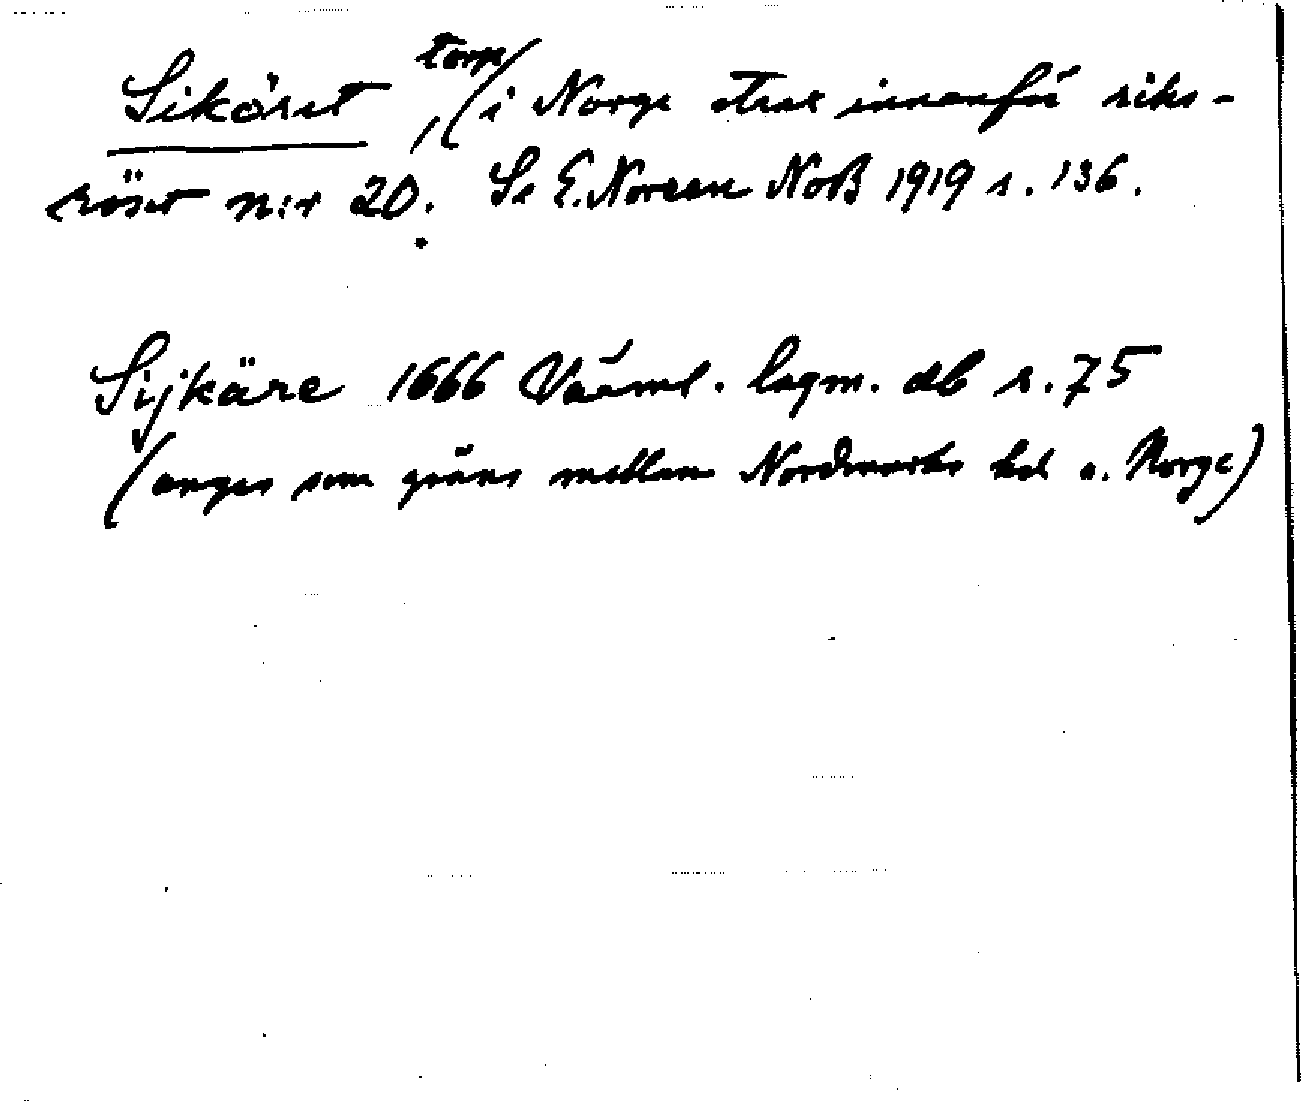 Siköret, torp (i Norge strax innanför riks-
röset n:r 20. Se E. Noreen NoB 1919 s. 136.
Sijkäre 1666 Värml. lagm. db s. 75
(anges som gräns mellan Nordmarks hd o. Norge)